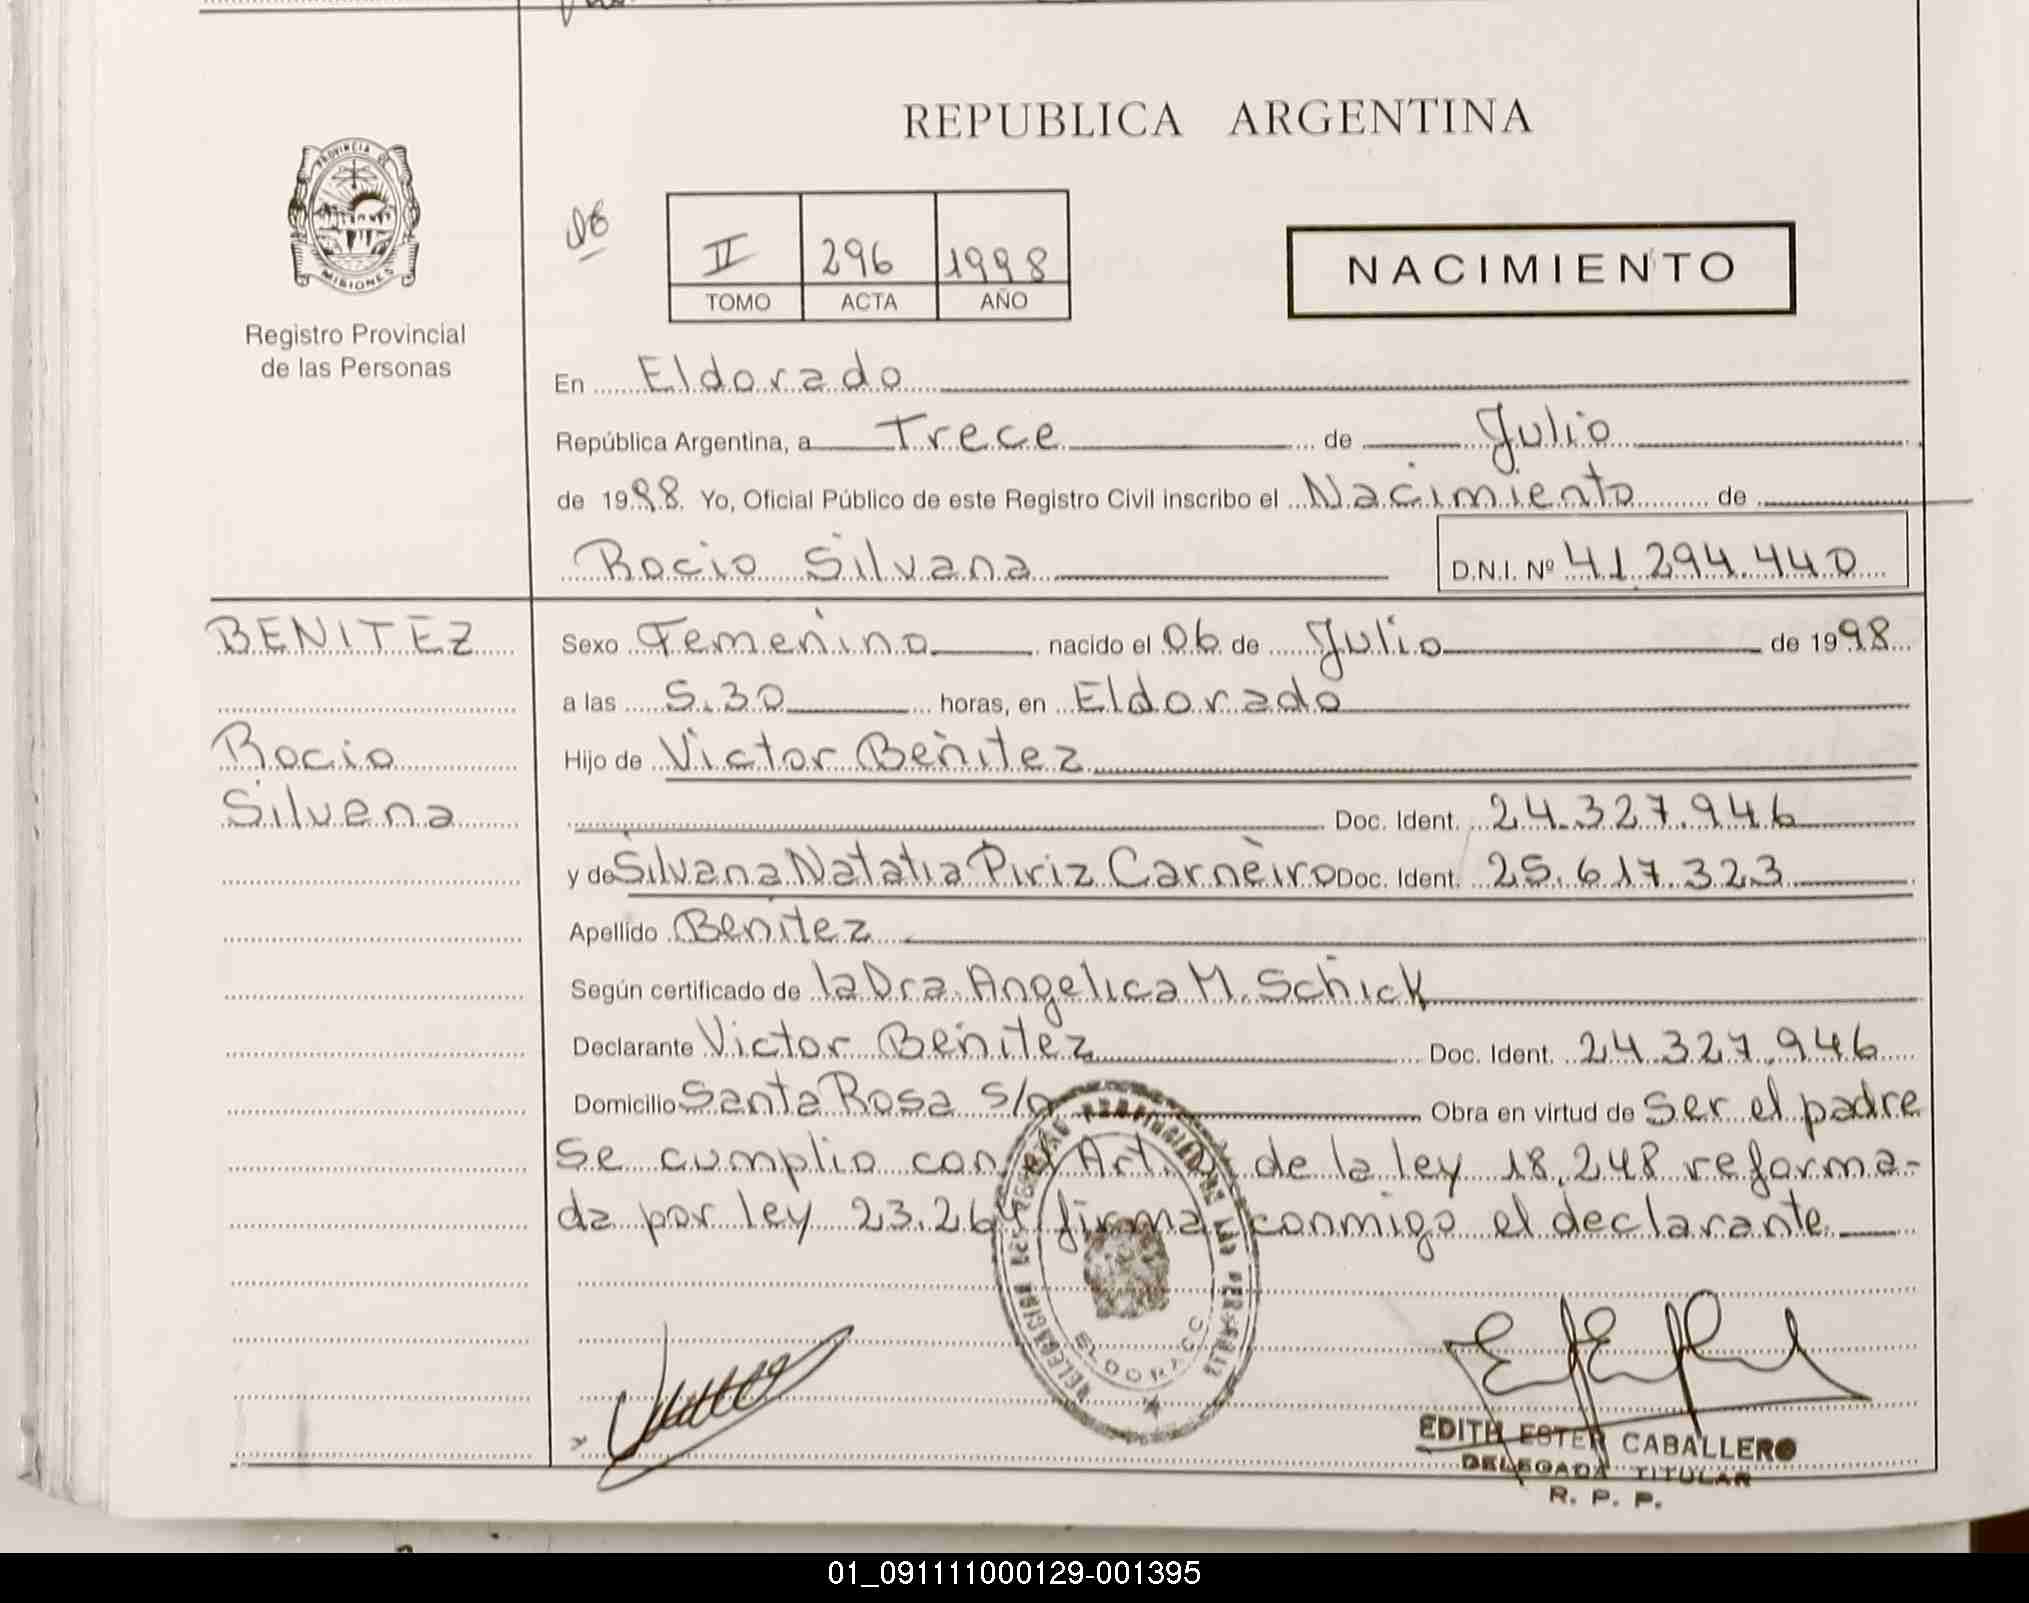 REPUBLICA ARGENTINA
PROVINCIA DE
MISIONES
Registro Provincial
de las Personas
II 296 1998
TOMO ACTA AÑO
NACIMIENTO
En Eldorado
República Argentina, a Trece de Julio
de 1998 Yo, Oficial Público de este Registro Civil inscribo el Nacimiento de
Rocio Silvana D.N.I. Nº 41.294.440
BENITEZ
Rocio
Silvena
Sexo Femenino nacido el 06 de Julio de 1998
a las 5.30 horas, en Eldorado
Hijo de Victor Benitez
Doc. Ident. 24.327.946
y de Silvana Natalia Piriz Carneiro Doc. Ident. 25.617.323
Apellido Benitez
Según certificado de la Dra. Angelica M. Schick
Declarante Victor Benitez Doc. Ident. 24.327.946
Domicilio Santa Rosa s/n Obra en virtud de ser el padre
se cumplio con el Art. de la ley 18.248 reforma-
da por ley 23.264 firma conmigo el declarante
ELDORADO
EDITH ESTER CABALLERO
DELEGADA TITULAR
R. P. P.
01_091111000129-001395